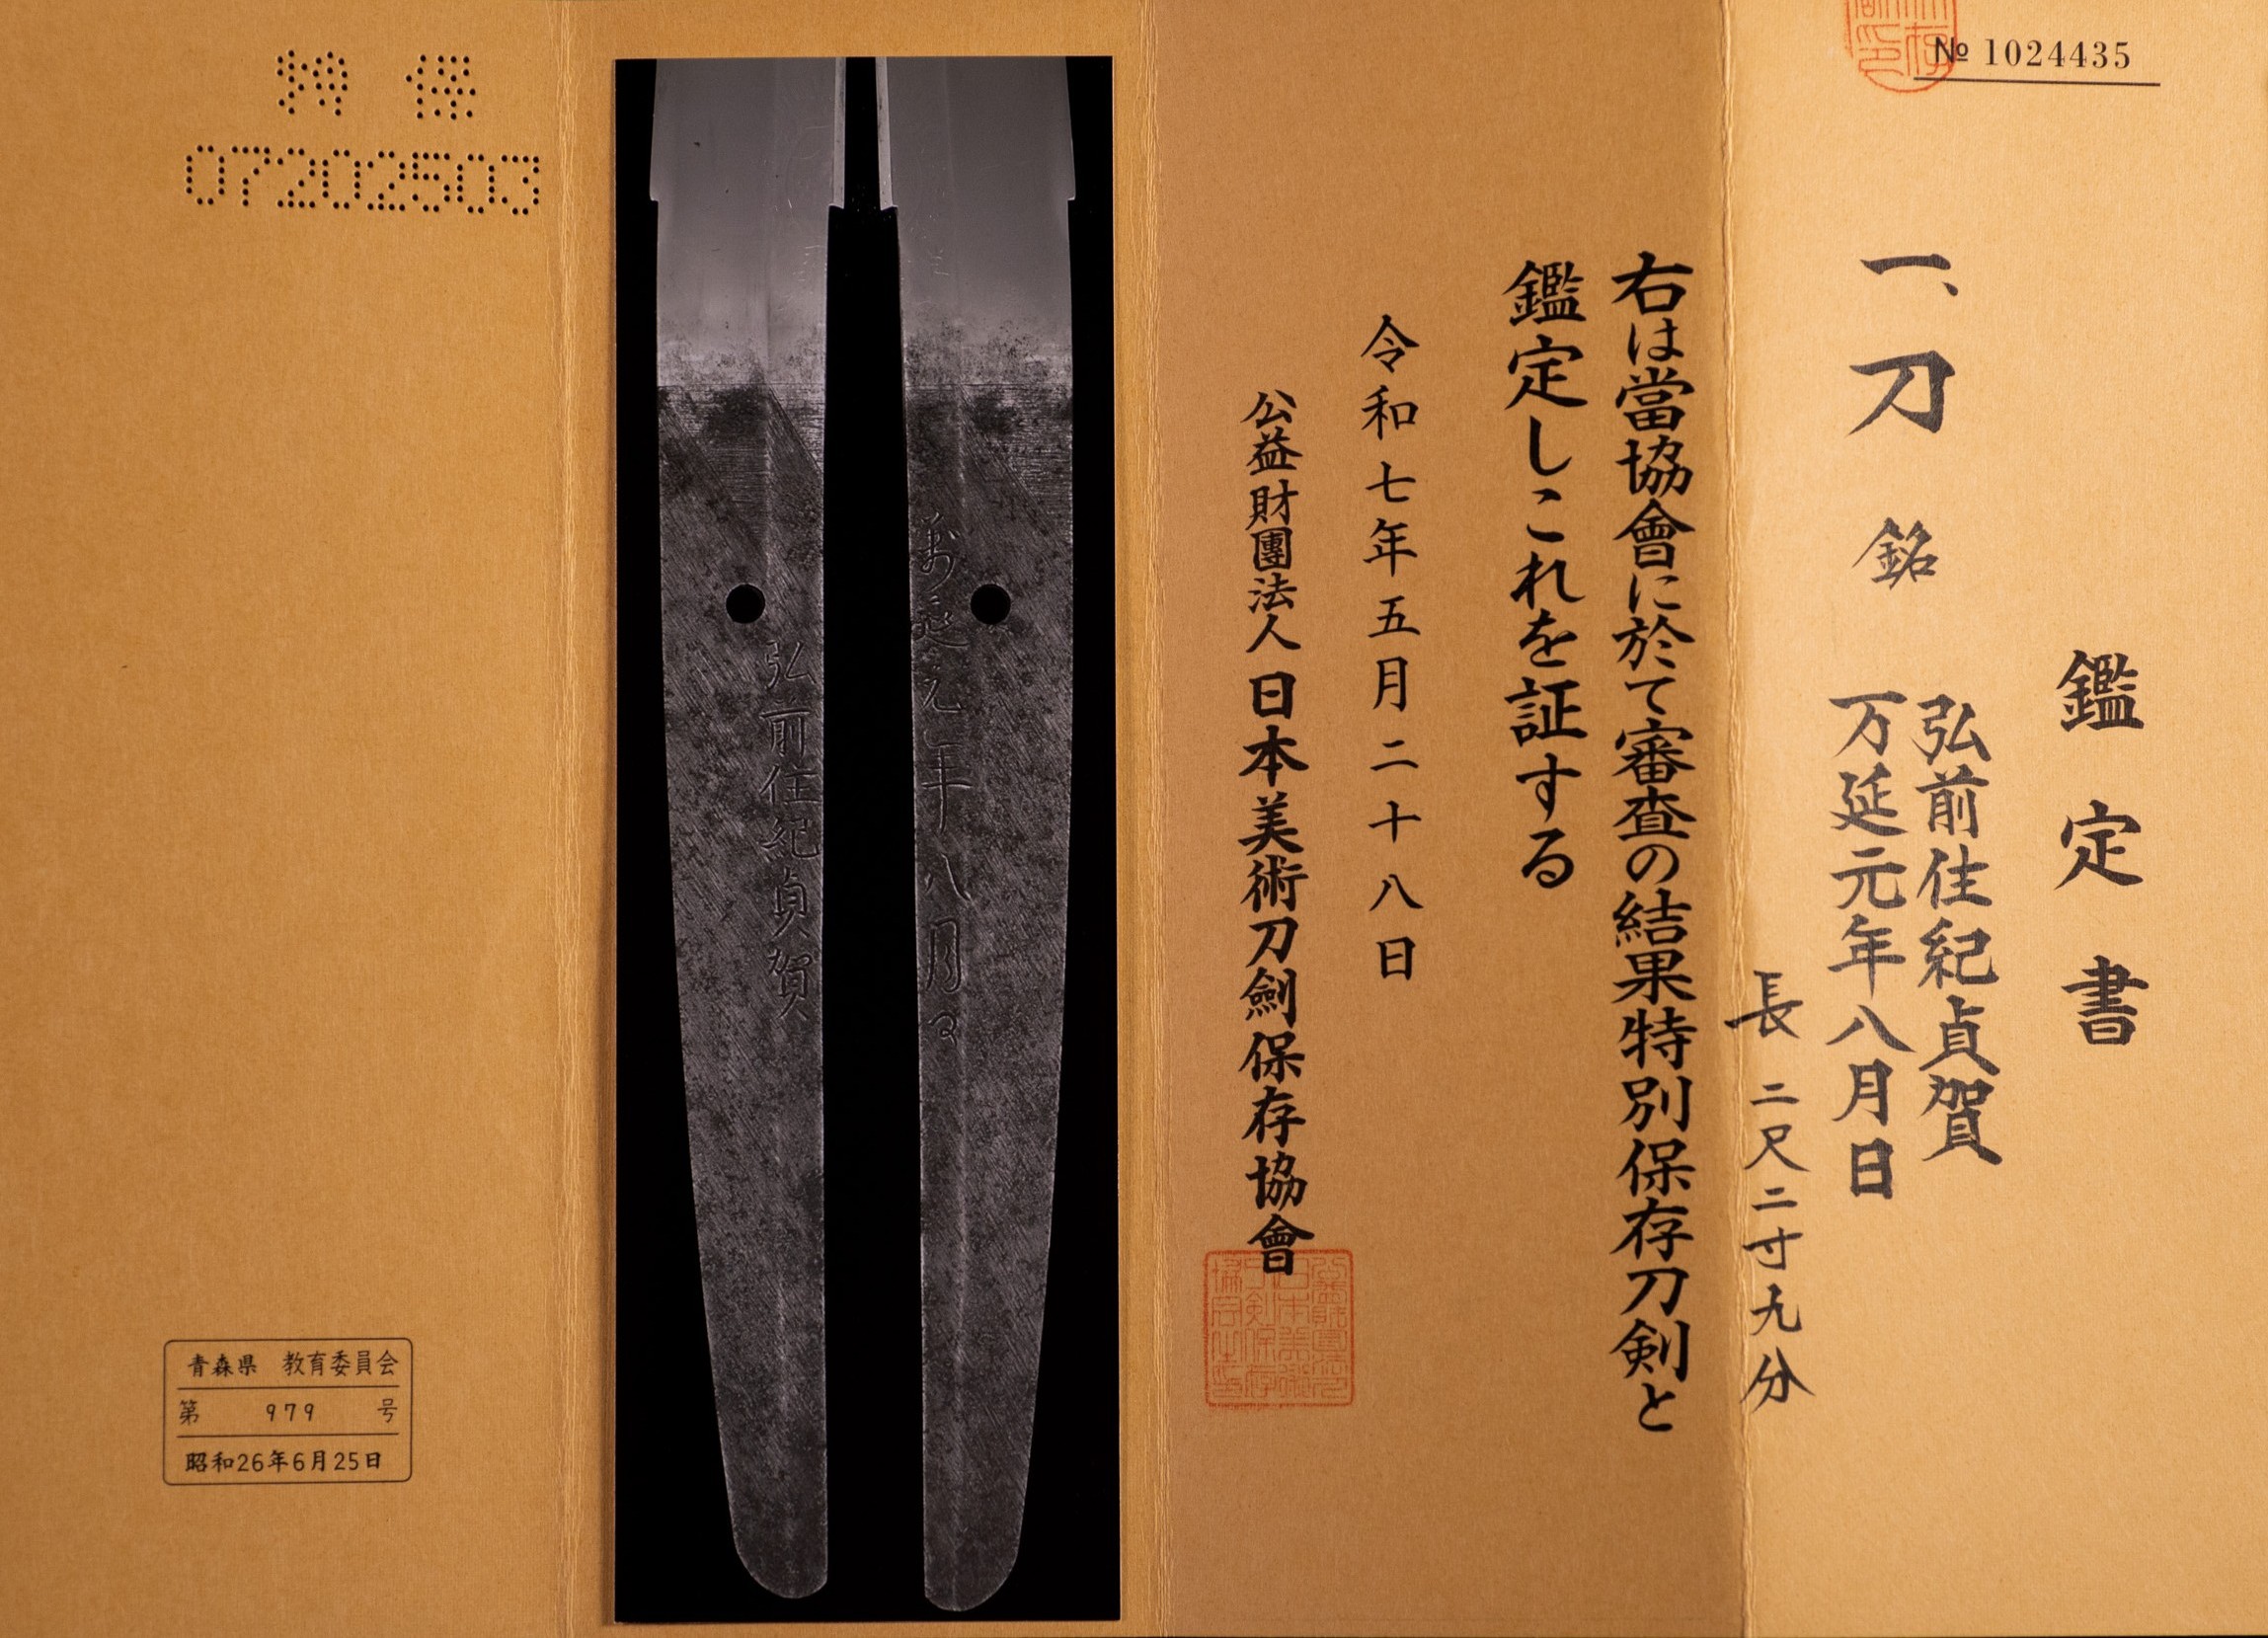 № 1024435
鑑定書
一、刀 銘 弘前住紀貞賀
万延元年八月日
長 二尺二寸九分
右は當協會に於て審査の結果特別保存刀剣と
鑑定しこれを証する
令和七年五月二十八日
公益財團法人 日本美術刀劍保存協會
萬延元年八月日
弘前住紀貞賀
特保
07202503
青森県 教育委員会
第 979 号
昭和26年6月25日